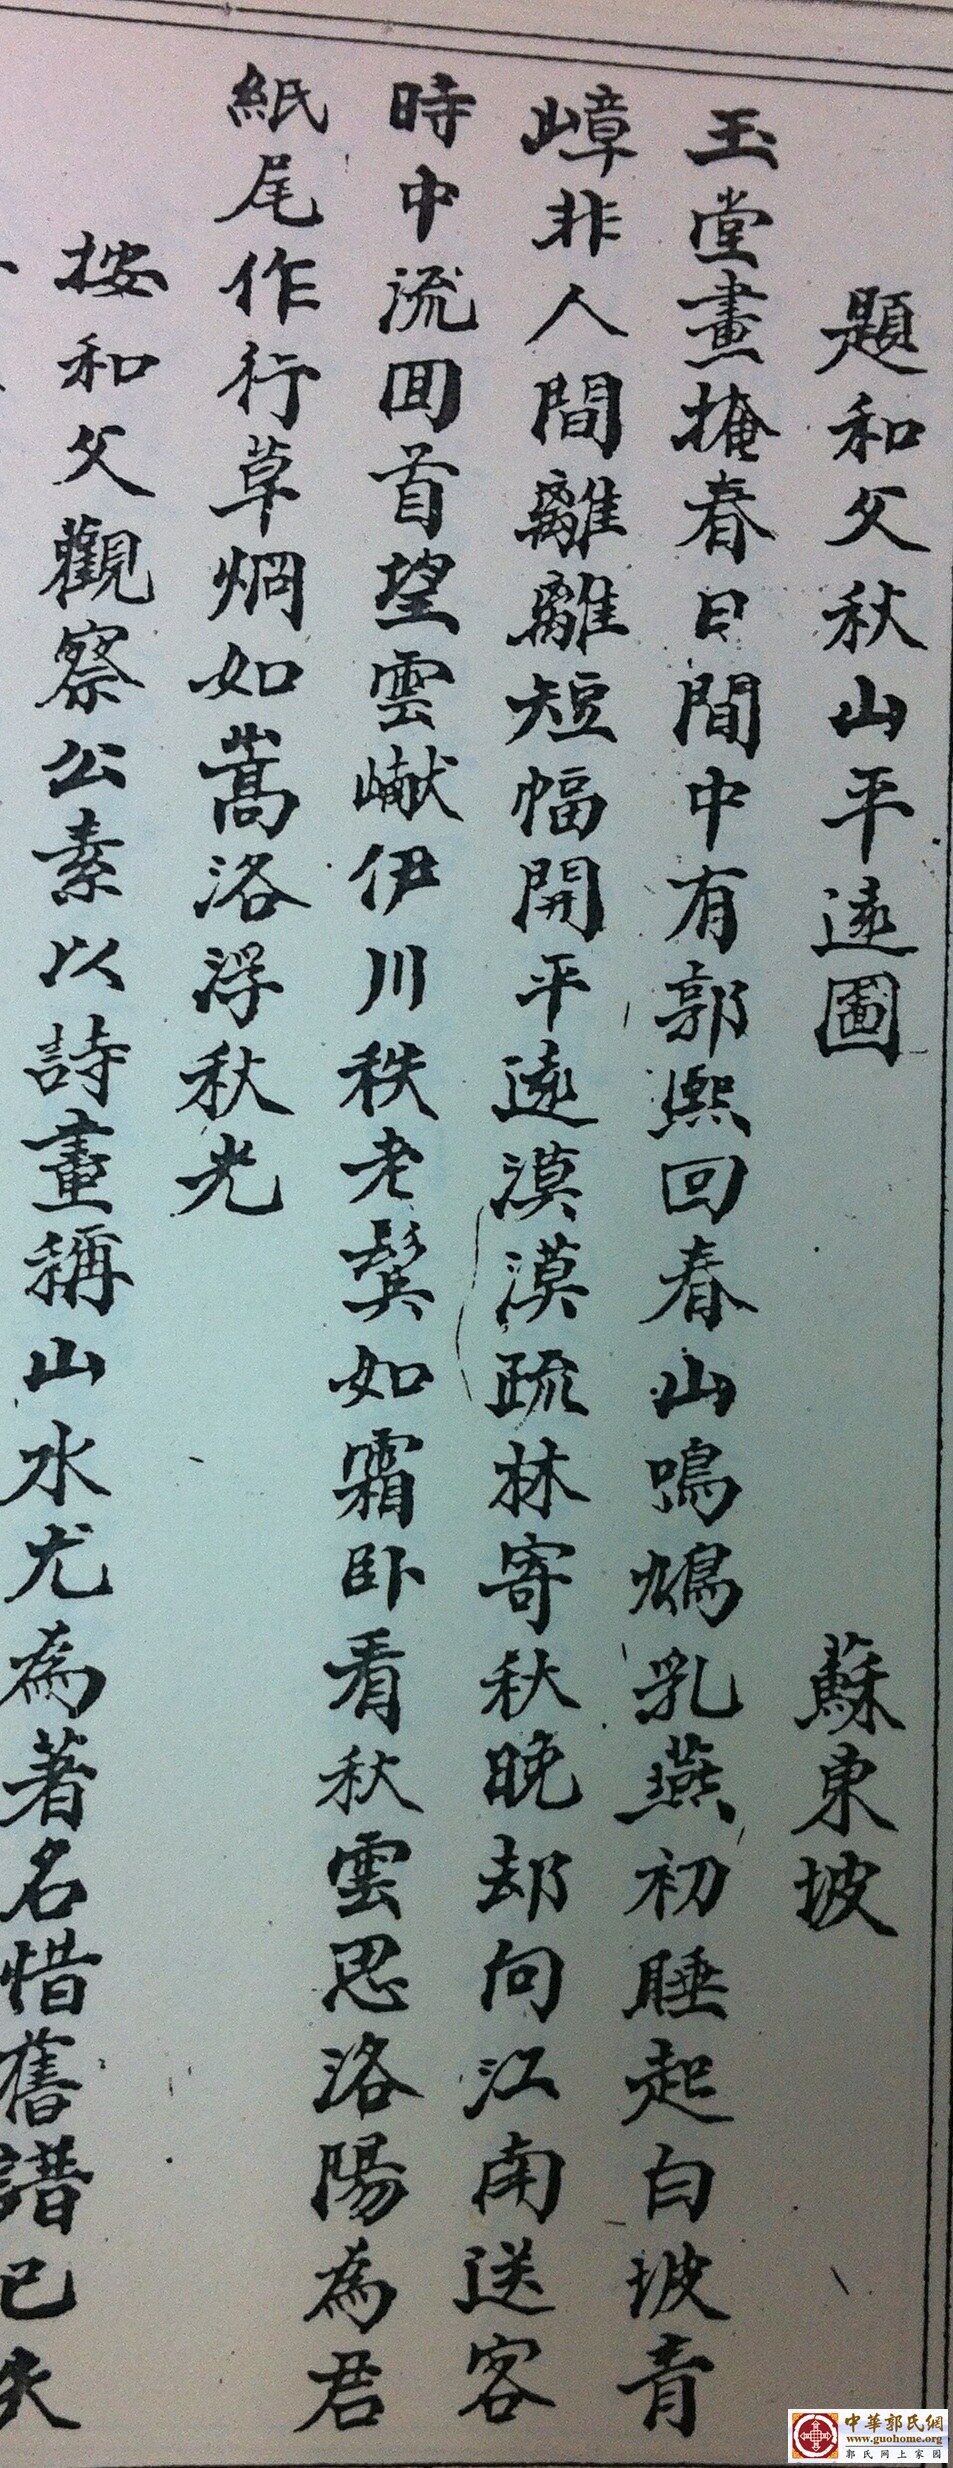 題和父秋山平遠圖　蘇東坡
玉堂畫掩春日間中有郭熙回春山鳴鳩乳燕初睡起白坡青
嶂非人間離離短幅開平遠漠漠疏林寄秋晚却向江南送客
時中流回首望雲巘伊川秩老鬓如霜卧看秋雲思洛陽為君
紙尾作行草烱如嵩洛浮秋光
按和父觀察公素以詩畫稱山水尤為著名惜舊譜已失
中華郭氏網
www.guohome.org
郭氏网上家园